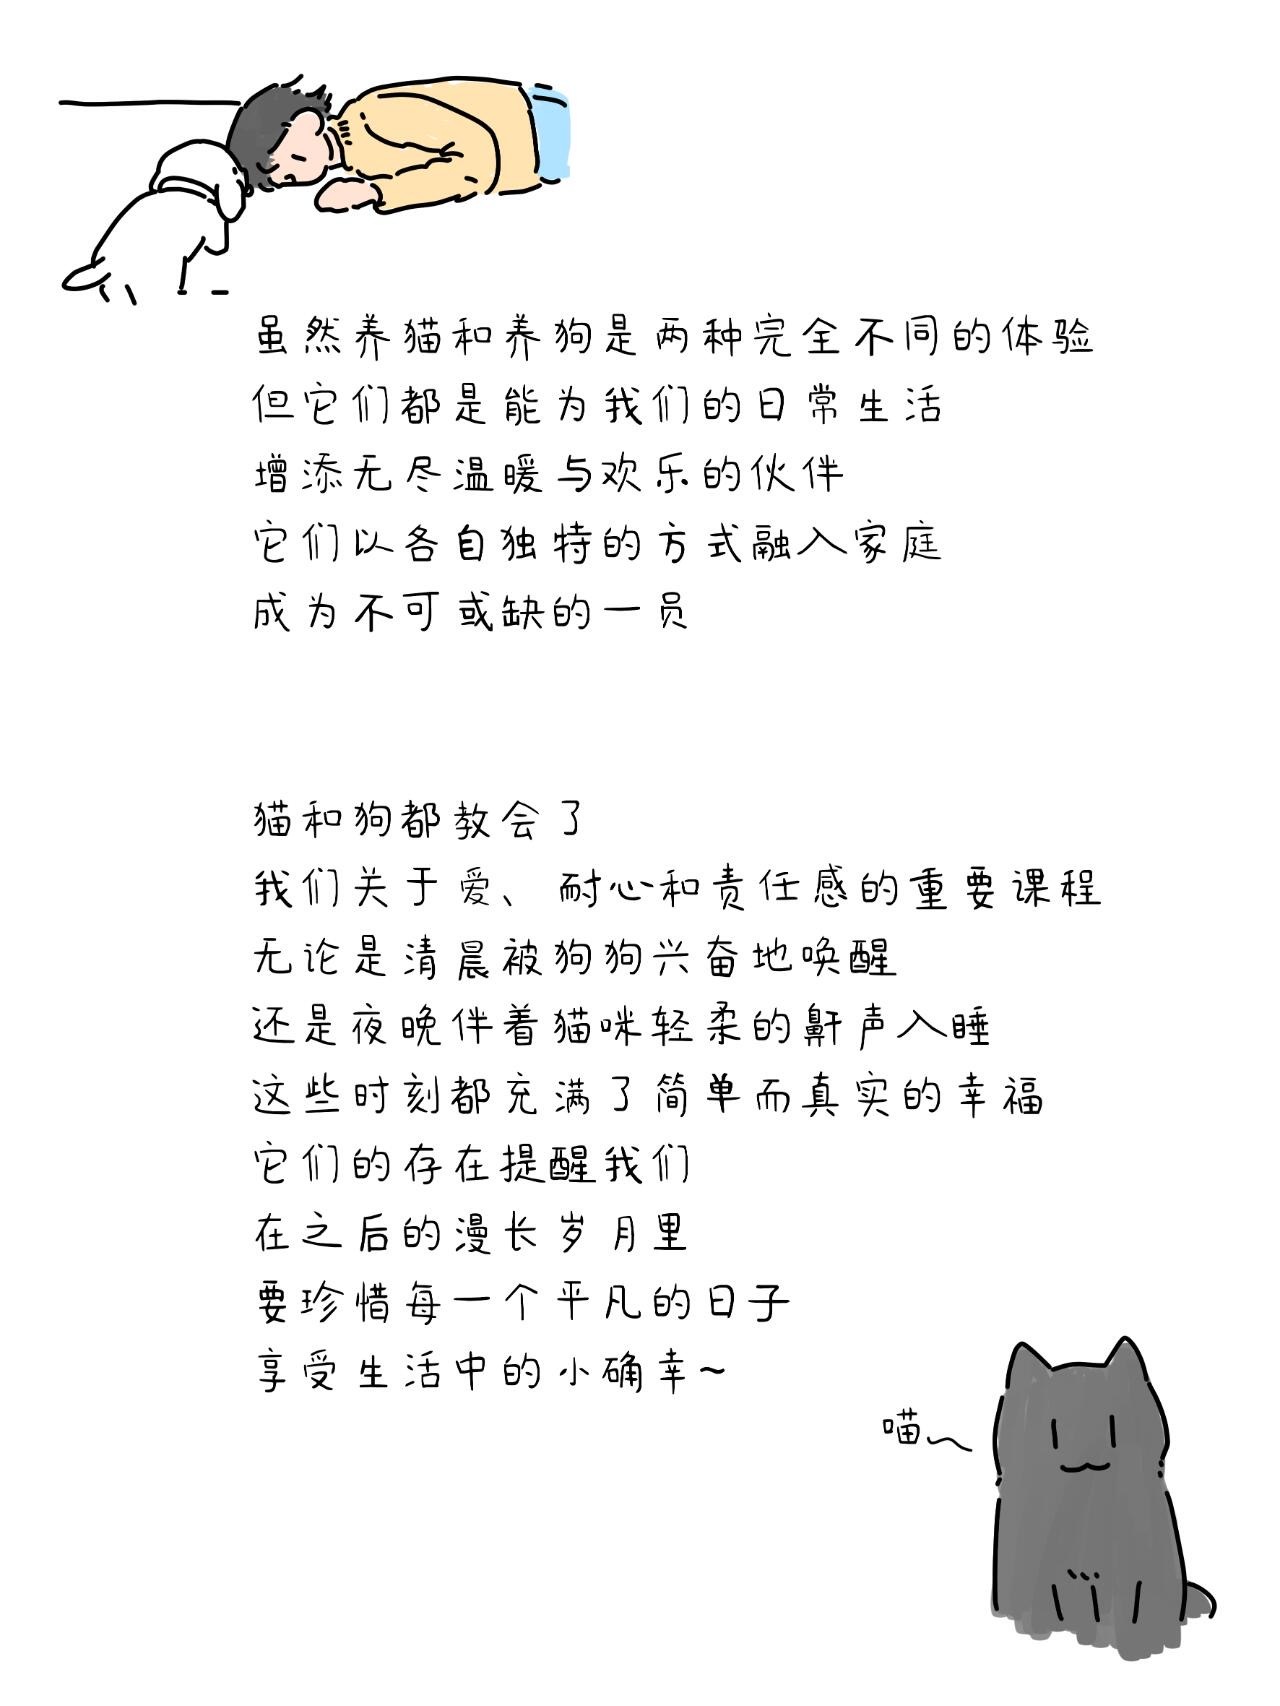 虽然养猫和养狗是两种完全不同的体验
但它们都是能为我们的日常生活
增添无尽温暖与欢乐的伙伴
它们以各自独特的方式融入家庭
成为不可或缺的一员
猫和狗都教会了
我们关于爱、耐心和责任感的重要课程
无论是清晨被狗狗兴奋地唤醒
还是夜晚伴着猫咪轻柔的鼾声入睡
这些时刻都充满了简单而真实的幸福
它们的存在提醒我们
在之后的漫长岁月里
要珍惜每一个平凡的日子
享受生活中的小确幸~
喵~